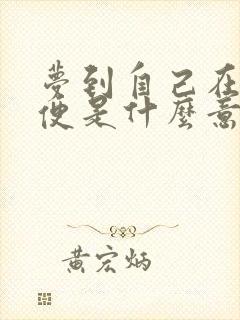 夢到自己在
便是什麼意
黃宏炳